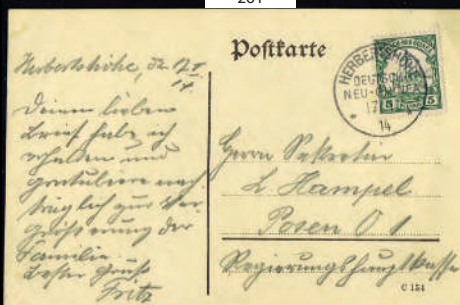 Postkarte
HERBERTSHÖHE
DEUTSCH-
NEU-GUINEA
17
14
5 5
Herbertshöhe, d. 17/I
14.
Deinen lieben
Brief habe ich
erhalten und
gratuliere nach
träglich zur Ver
größerung der
Familie.
Besten Gruß
Fritz
Herrn Sekretär
L. Hampel
Posen O 1
Regierungshauptkasse
C 154